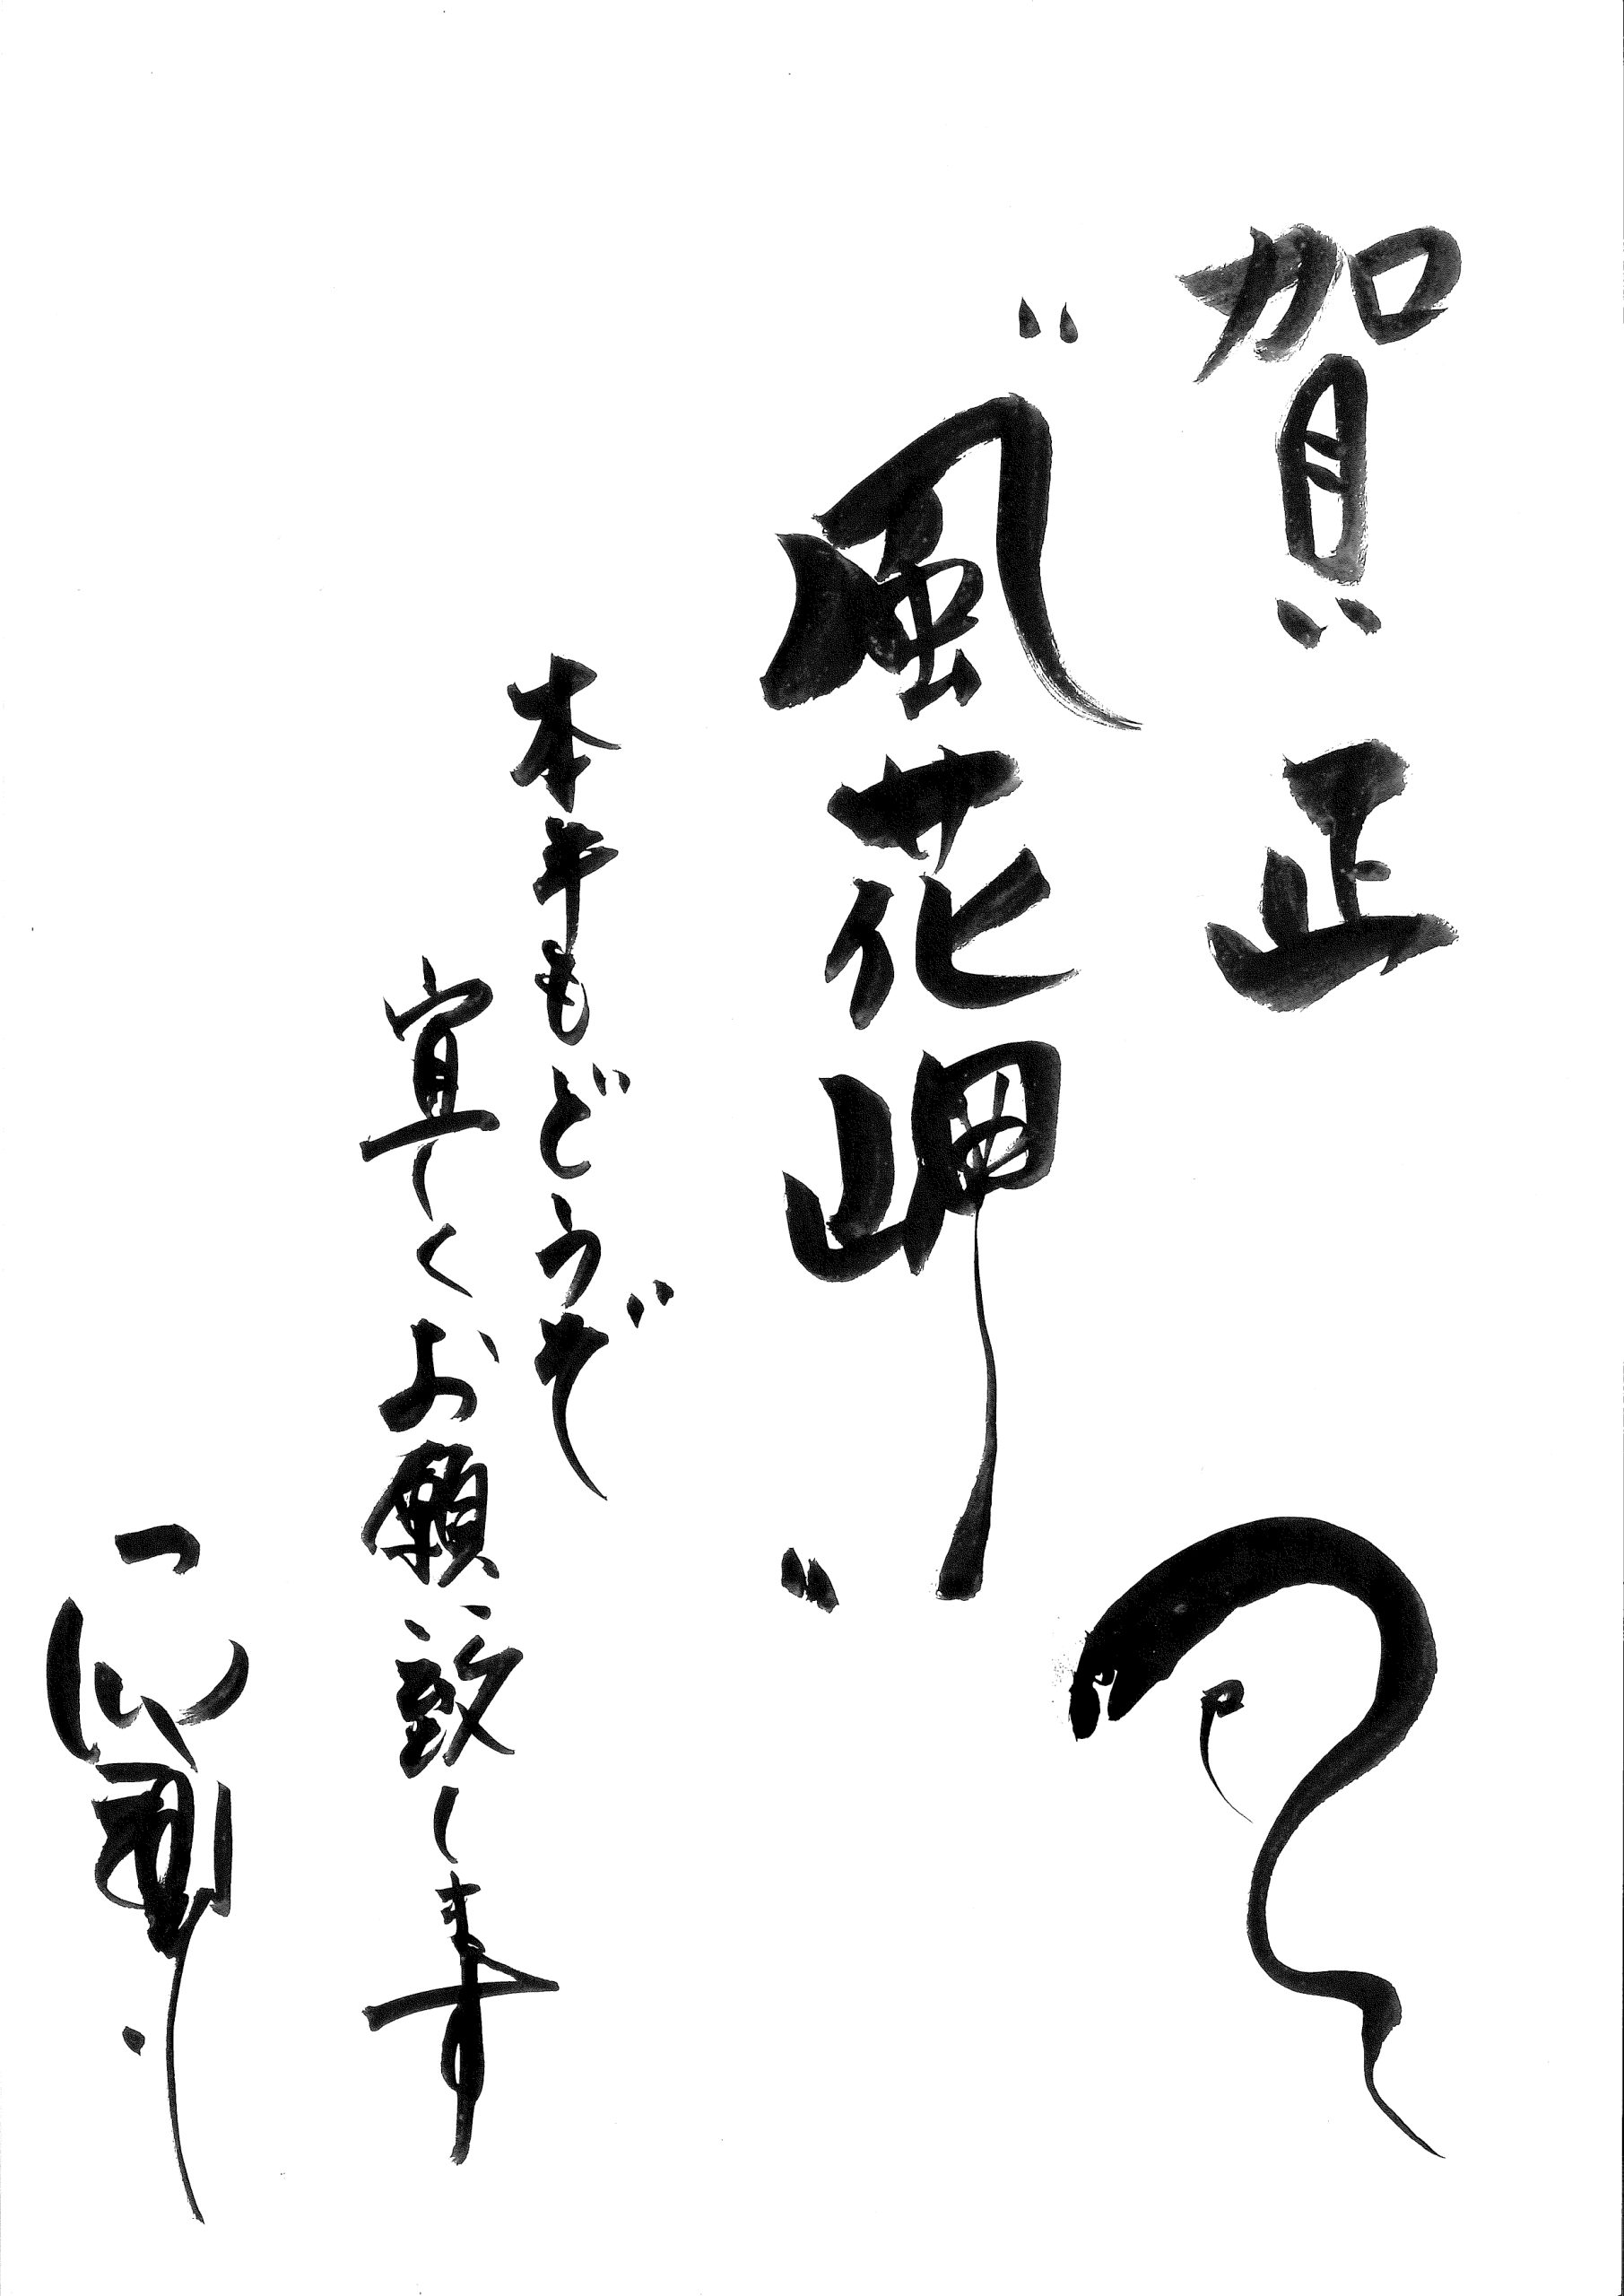 賀正
"風花岬"
巳
本年もどうぞ
宜しくお願い致します